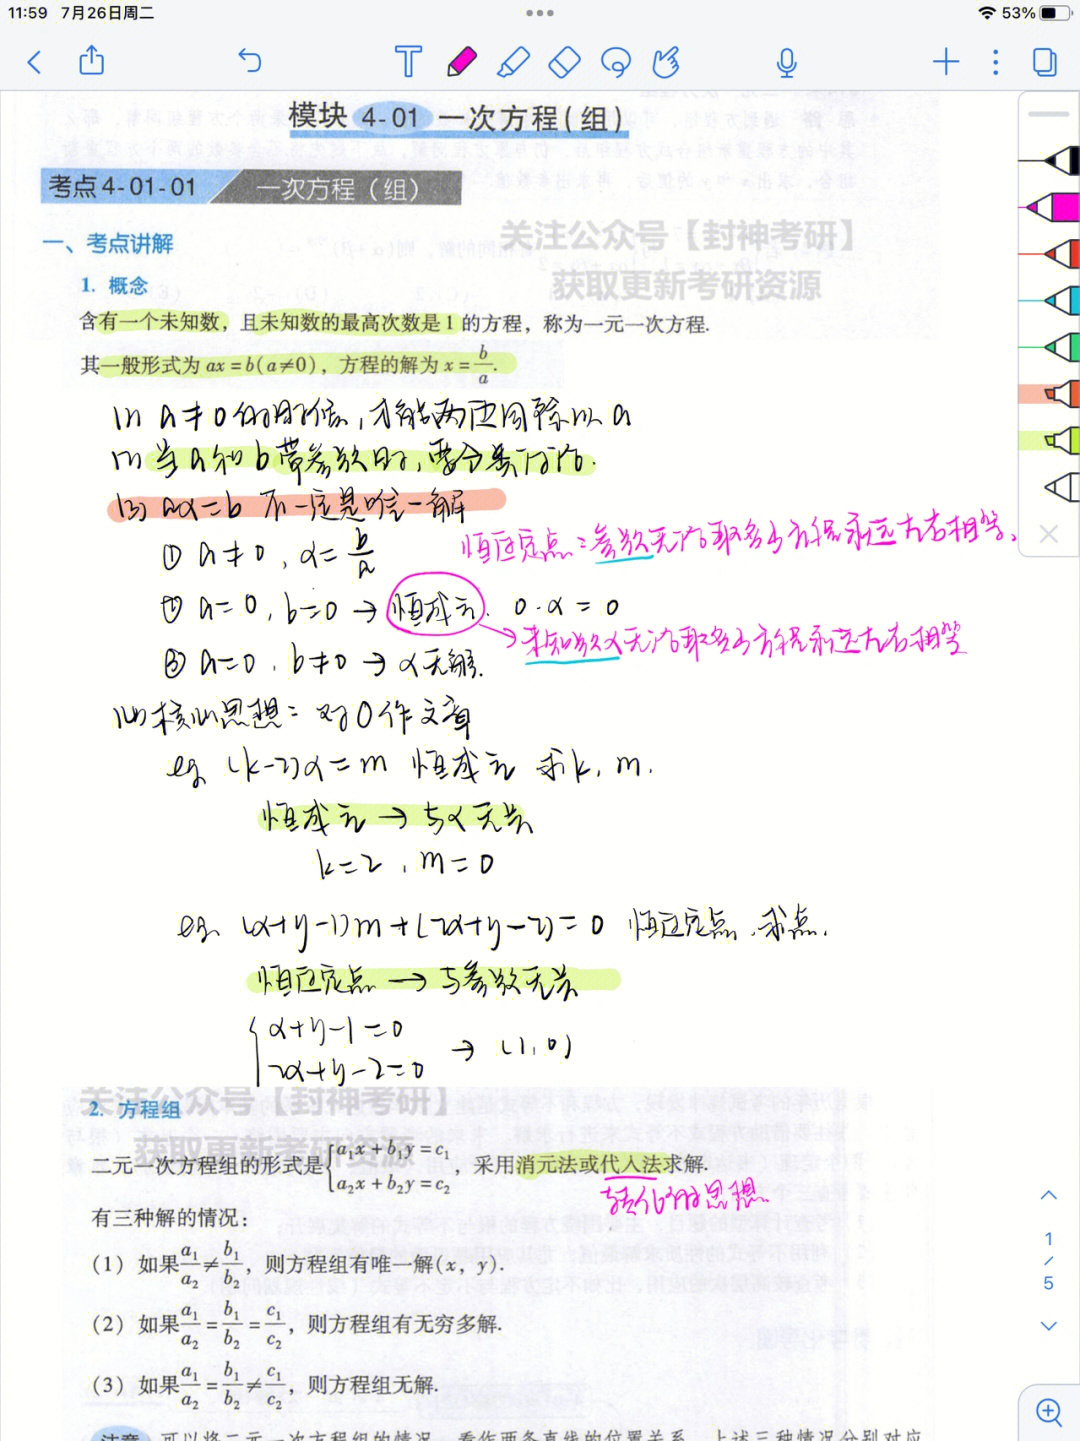 11:59 7月26日周二
53%
模块 4-01 一次方程(组)
考点4-01-01 一次方程(组)
关注公众号【封神考研】
获取更新考研资源
一、考点讲解
1. 概念
含有一个未知数,且未知数的最高次数是1的方程,称为一元一次方程.
其一般形式为 ax=b(a≠0),方程的解为 x=b/a.
(1) a≠0的时候,才能两边同除以a
(2) 当a和b带参数时,要分类讨论.
(3) ax=b 不一定是唯一解
恒过定点:参数无论取多少方程永远左右相等.
① a≠0, x=b/a
② a=0, b=0 → 恒成立. 0·x=0
→未知数x无论取多少方程永远左右相等
③ a=0, b≠0 → x无解.
(4) 核心思想:对0作文章
eg (k-2)x=m 恒成立 求k, m.
恒成立 → 与x无关
k=2, m=0
eg. (x+y-1)m+(2x+y-2)=0 恒过定点,求点.
恒过定点 → 与参数无关
{x+y-1=0
2x+y-2=0 → (1,0)
关注公众号【封神考研】
获取更新考研资源
2. 方程组
二元一次方程组的形式是{a₁x+b₁y=c₁
a₂x+b₂y=c₂ 采用消元法或代入法求解.
转化的思想.
有三种解的情况:
(1) 如果a₁/a₂≠b₁/b₂,则方程组有唯一解(x, y).
(2) 如果a₁/a₂=b₁/b₂=c₁/c₂,则方程组有无穷多解.
(3) 如果a₁/a₂=b₁/b₂≠c₁/c₂,则方程组无解.
注意 可以将二元一次方程组的情况,看作两条直线的位置关系,上述三种情况分别对应
1
/
5